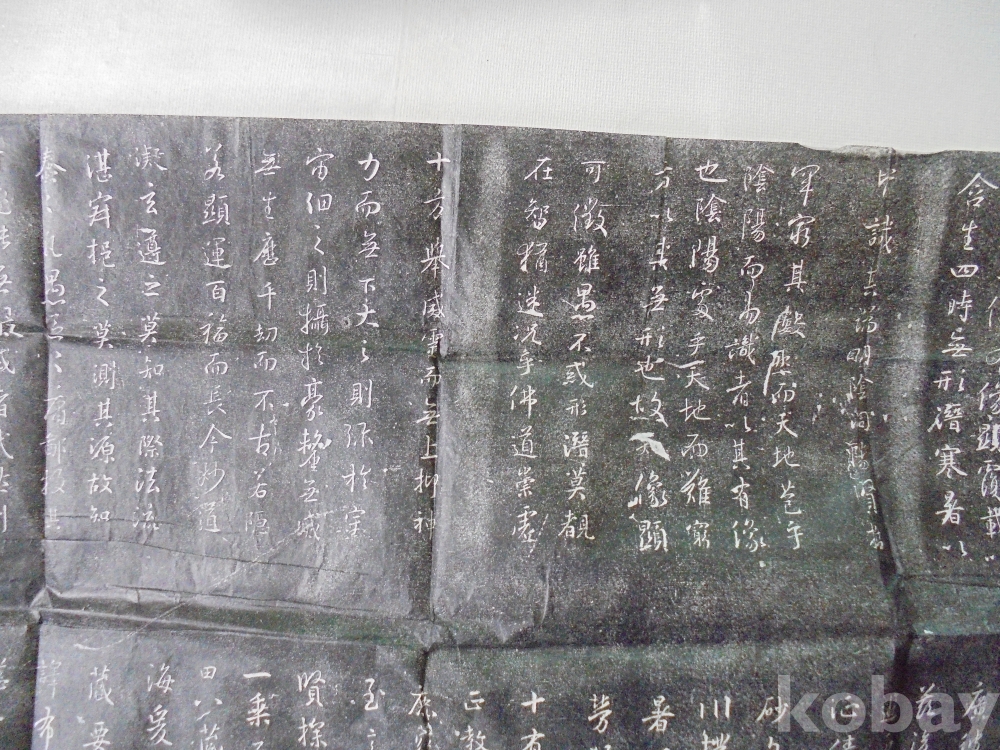 顯覆載以
含生四時無形潛寒暑以
識其端明陰洞陽賢哲
罕窮其數然而天地苞乎
陰陽而易識者以其有像
也陰陽處乎天地而難窮
者以其無形也故知像顯
可徵雖愚不惑形潛莫覩
在智猶迷況乎佛道崇虛
十方舉威靈而無上抑神
力而無下大之則彌於宇
宙細之則攝於豪釐無滅
無生歷千劫而不古若隱
若顯運百福而長今妙道
凝玄遵之莫知其際法流
湛寂挹之莫測其源故知
蠢蠢凡愚區區庸鄙投其
砂
川
暑
勞
十有
正教
至言
賢探
一乘
田八藏
海爰
藏要
譯布
kobay